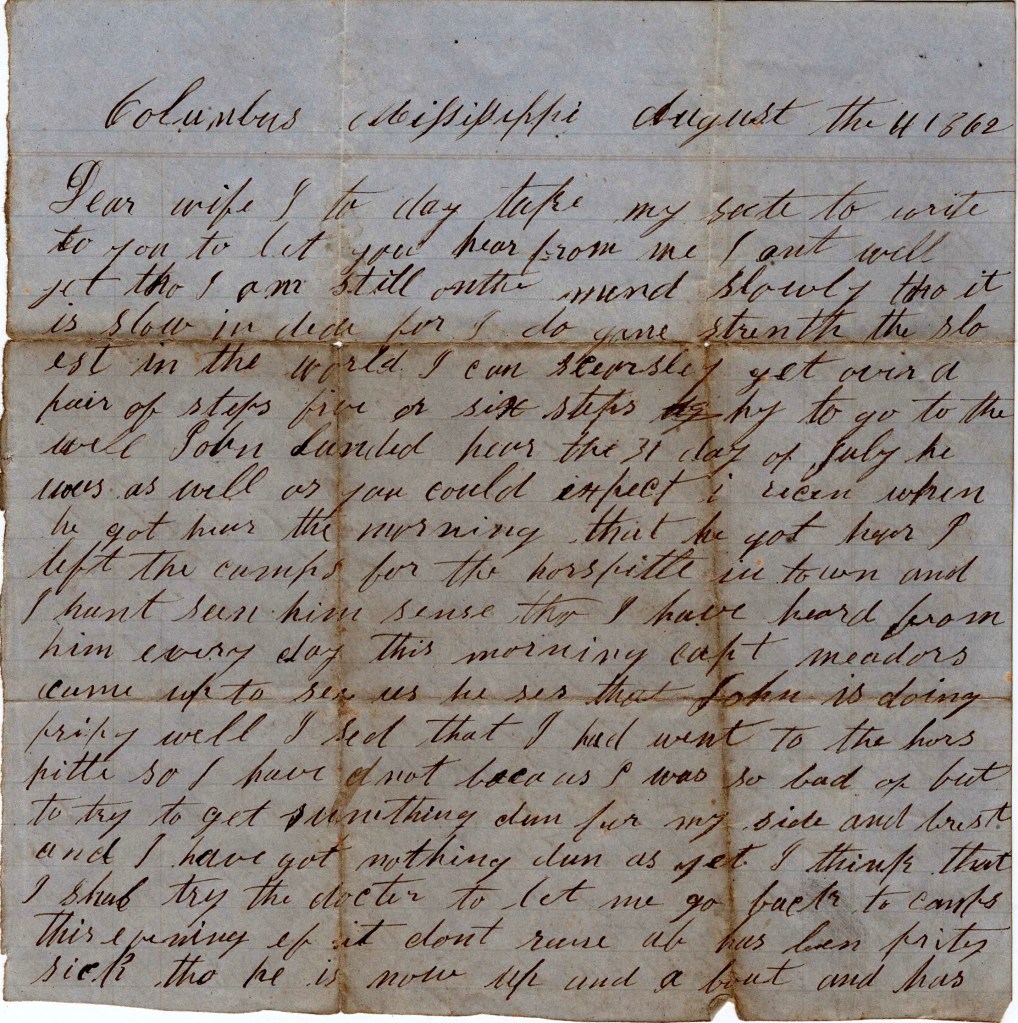 Columbus Mississippi August the 4 1862
Dear wife I to day take my seete to write
to you to let you hear from me I ant well
yet tho I am still onthe mend slowly tho it
is slow in dede for I do gane strenth the slo
est in the world I can scearsley get over a
pair of steps five or six steps hy to go to the
well John Landed hear the 31 day of July he
was as well as you could expect i recen when
he got hear the morning that he got hear I
left the camps for the horspittle in town and
I hant seen him sense tho I have heard from
him every day this morning capt meadors
came up to see us he ses that John is doing
prity well I sed that I had went to the hors
pitle so I have d not becaus I was so bad of but
to try to get sumething dun for my side and brest
and I have got nothing dun as yet I think that
I shal try the docter to let me go back to camps
this evening ef it dont rane ab has ben prity
sick tho he is now up and a bout and has